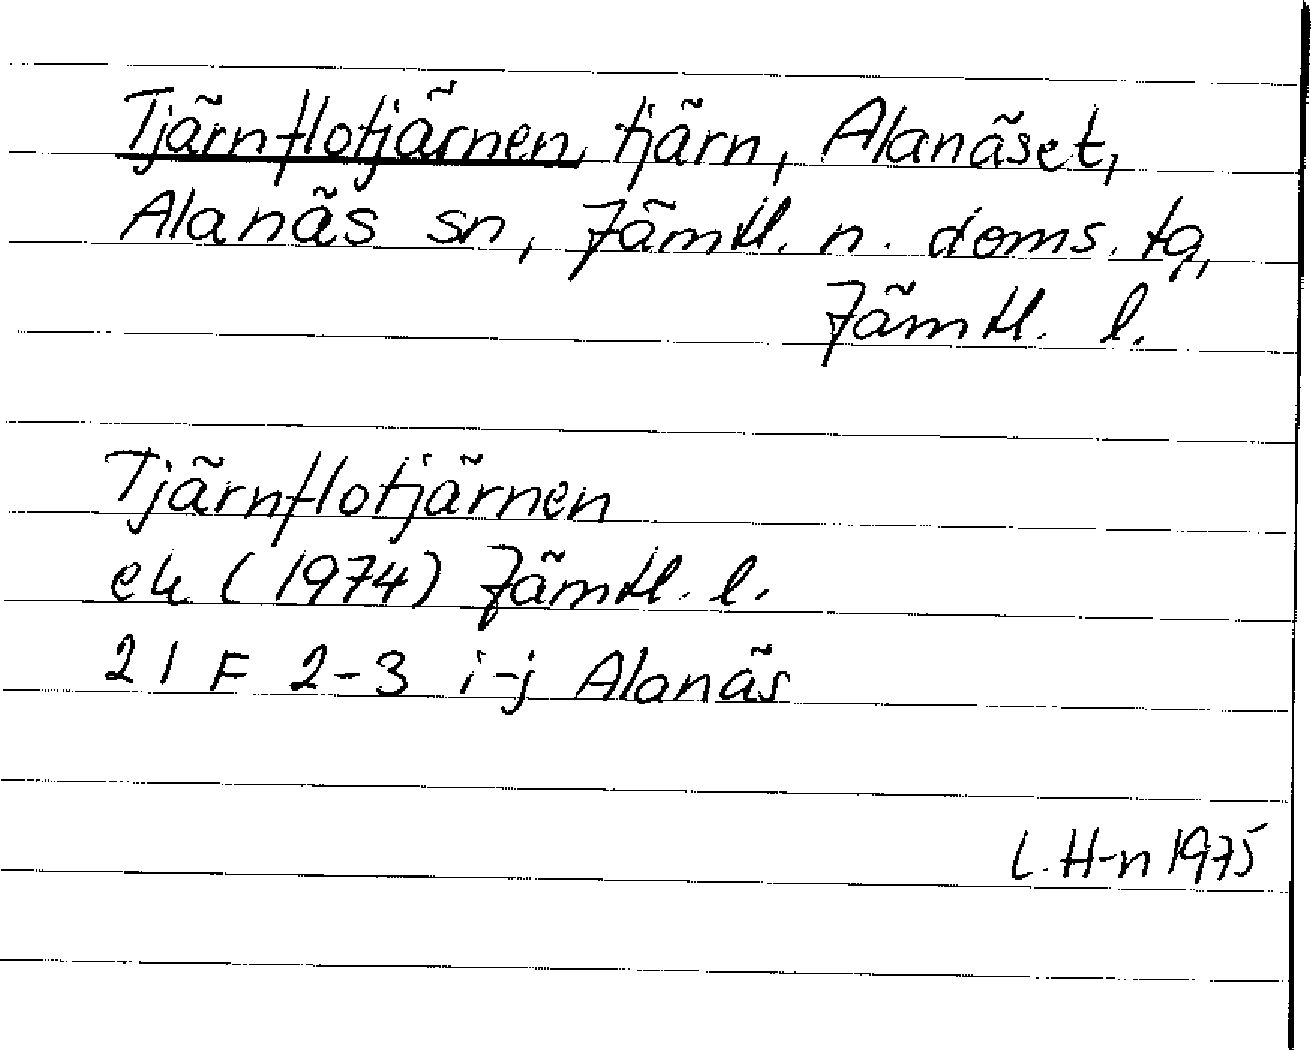 Tjärnflotjärnen, tjärn, Alanäset,
Alanäs sn, Jämtl. n. doms. tg,
Jämtl. l.
Tjärnflotjärnen
ek (1974) Jämtl. l.
21 F 2-3 i-j Alanäs
L. H-n 1975